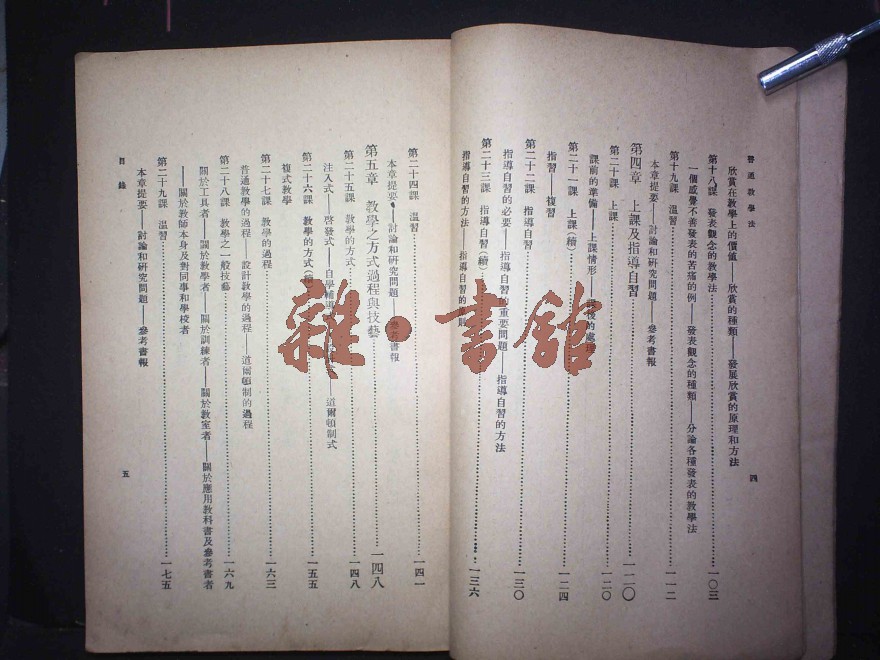 普通教學法
四
欣賞在教學上的價值——欣賞的種類——發展欣賞的原理和方法
第十八課 發表觀念的教學法……一〇三
一個感覺不善發表的苦痛的例——發表觀念的種類——分論各種發表的教學法
第十九課 溫習……一一二
本章提要——討論和研究問題——參考書報
第四章 上課及指導自習……一二〇
第二十課 上課……一二〇
課前的準備——上課情形——課後的處理
第二十一課 上課(續)……一二四
指習——複習
第二十二課 指導自習……一三〇
指導自習的必要——指導自習的重要問題——指導自習的方法
第二十三課 指導自習(續)……一三六
指導自習的方法——指導自習的
第二十四課 溫習……一四一
本章提要——討論和研究問題——參考書報
第五章 教學之方式過程與技藝……一四八
第二十五課 教學的方式……一四八
注入式——啓發式——自學輔導——道爾頓制式
第二十六課 教學的方式(續)……一五五
複式教學
第二十七課 教學的過程……一六三
普通教學的過程 設計教學的過程——道爾頓制的過程
第二十八課 教學之一般技藝……一六九
關於工具者——關於教學者——關於訓練者——關於教室者——關於應用教科書及參考書者
——關於教師本身及對同事和學校者
第二十九課 溫習……一七五
本章提要——討論和研究問題——參考書報
目錄
五
雜·書館